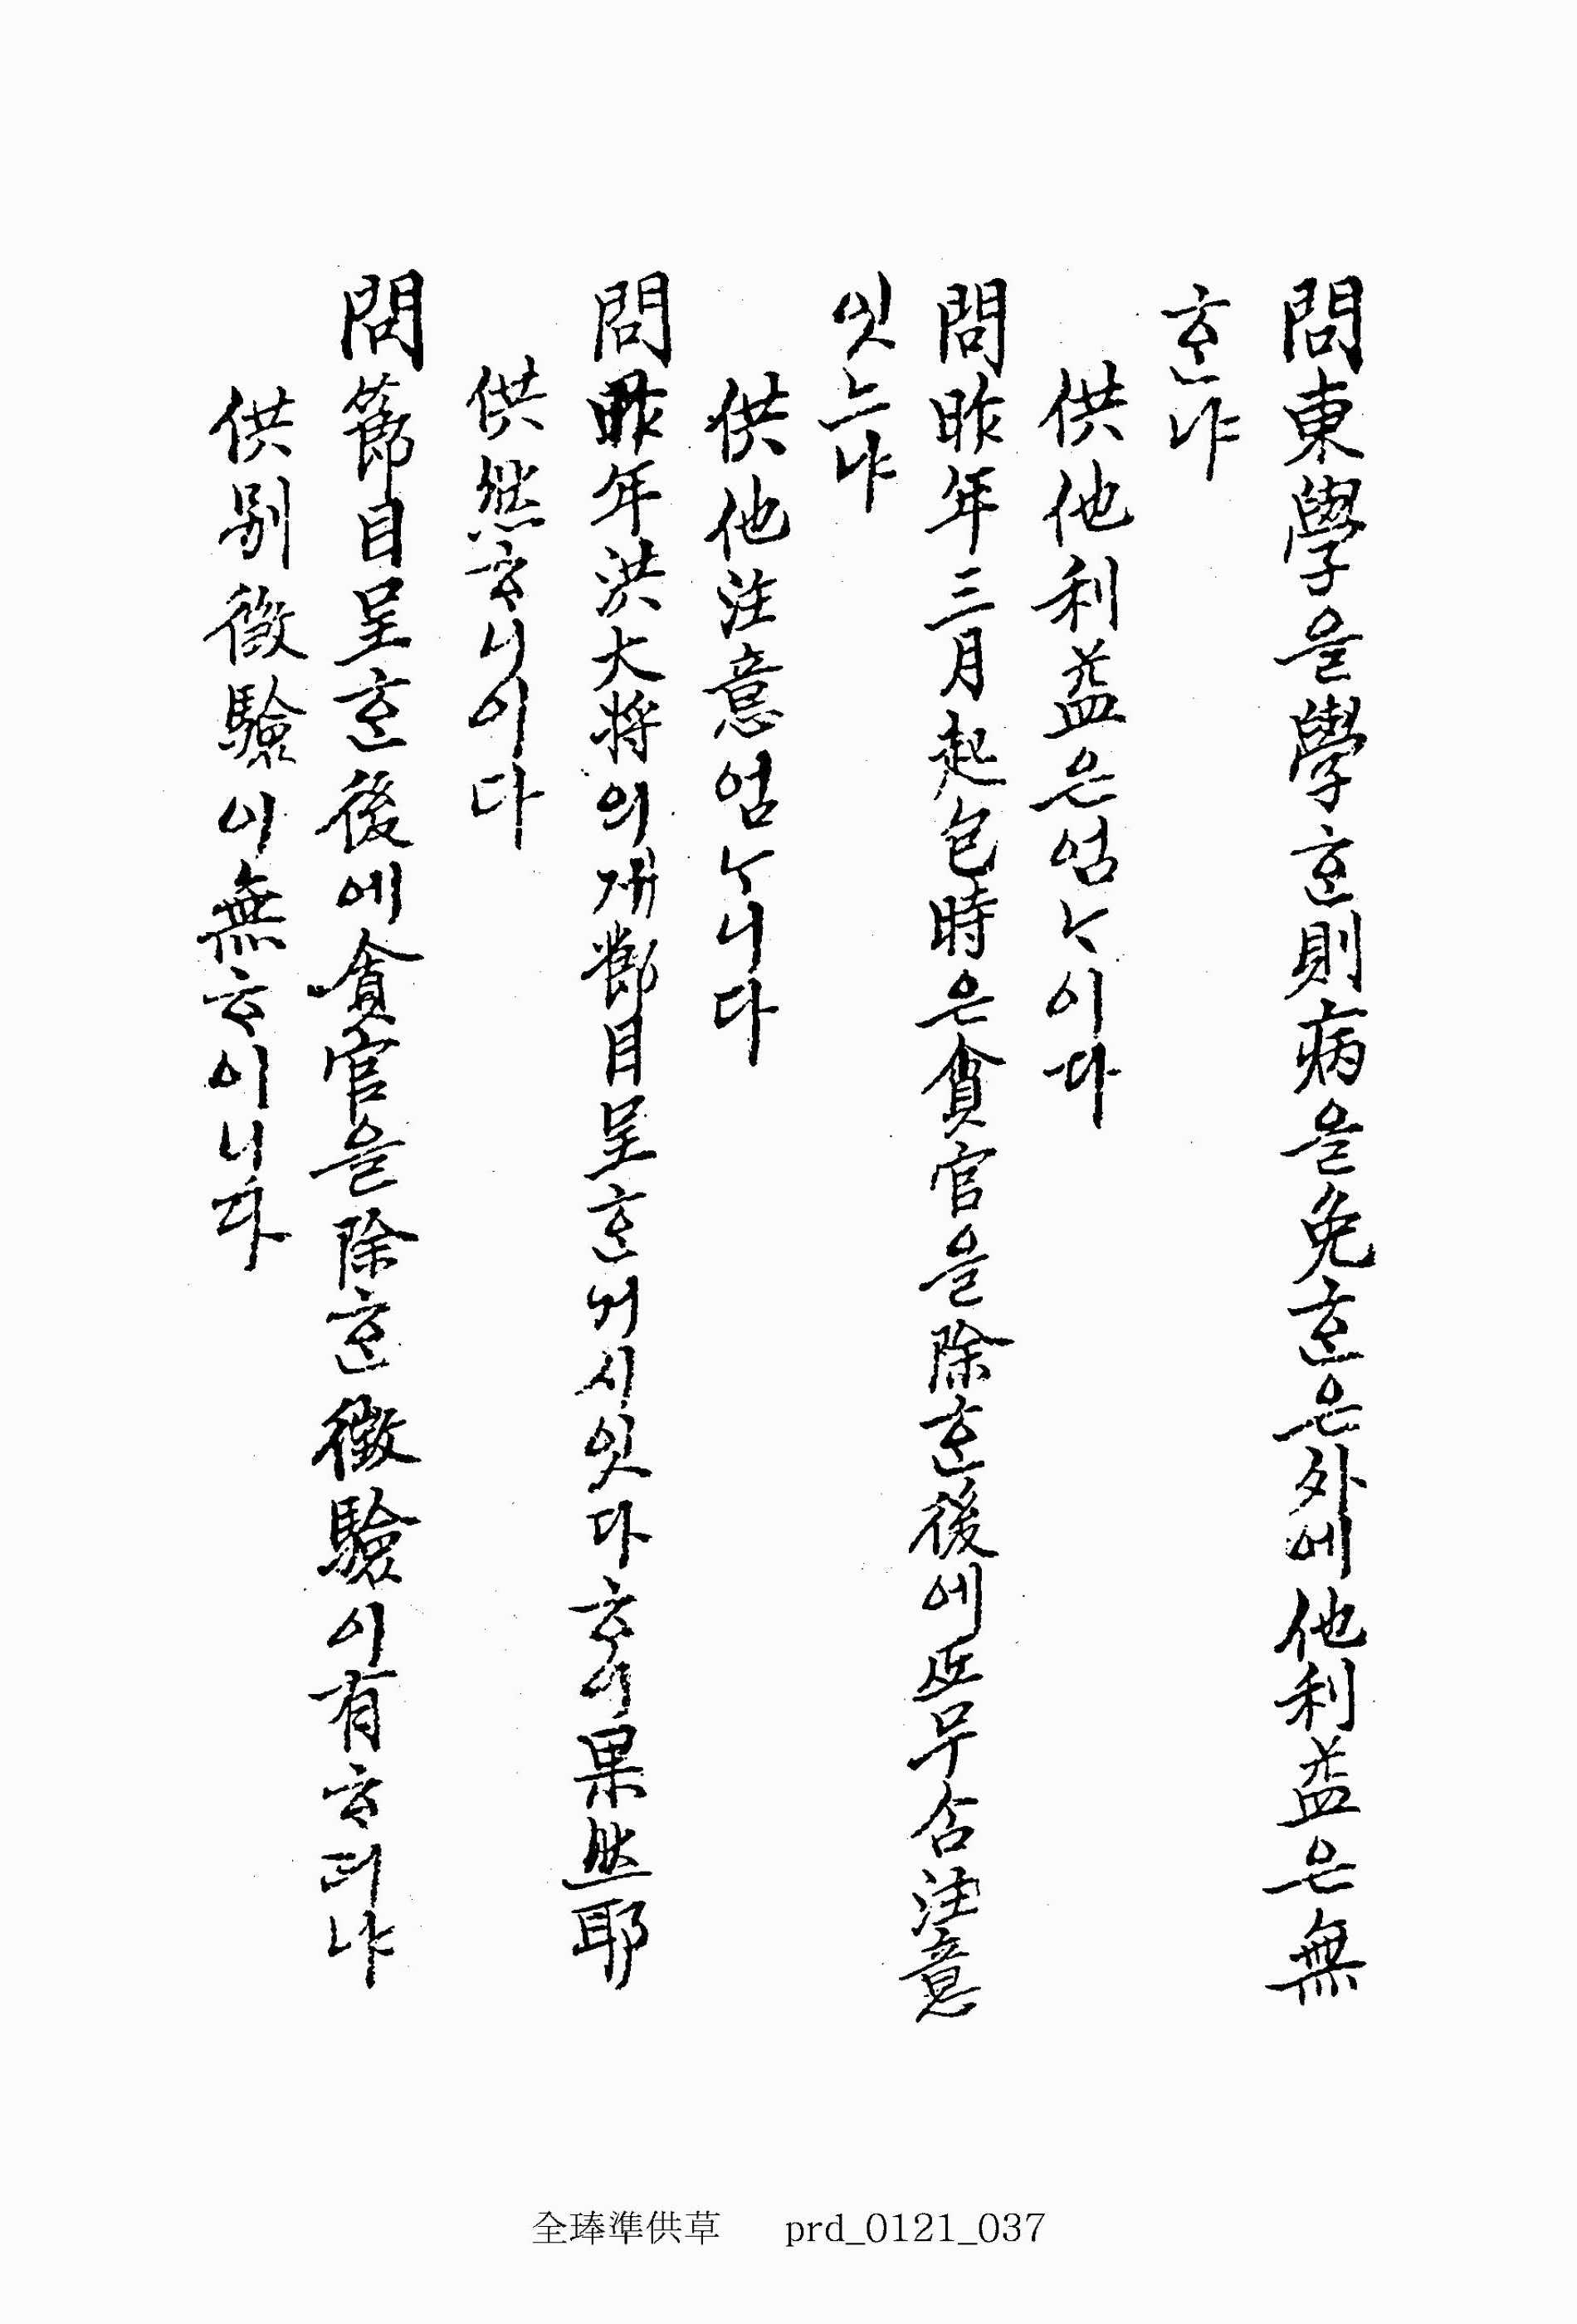 問東學을學ᄒᆞᆫ則病을免ᄒᆞᆫ은外에他利益은無
ᄒᆞᆫ냐
供他利益은업ᄂᆞ이다
問昨年三月起包時은貪官을除ᄒᆞᆫ後에또무含注意
잇느냐
供他注意업ᄂᆞ니다
問昨年洪大將의게節目呈ᄒᆞᆫ거시잇다ᄒᆞ이果然耶
供然ᄒᆞ니이다
問節目呈ᄒᆞᆫ後에貪官을除ᄒᆞᆫ徵驗이有ᄒᆞ더냐
供別徵驗이無ᄒᆞ이니다
全琫準供草 prd_0121_037